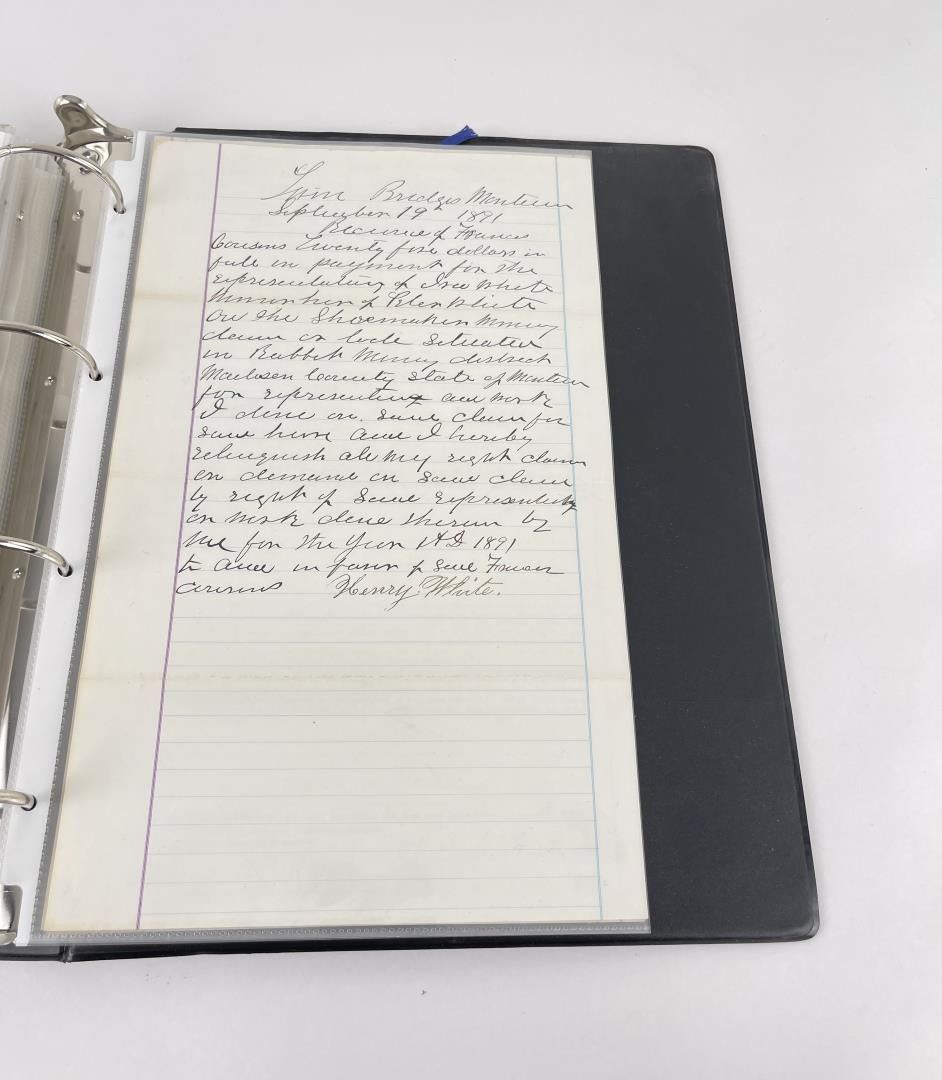 Twin Bridges Montana
September 19th 1891
Received of Francis
Cousins Twenty five dollars in
full in payment for the
representating of
on the Shoemaker Mining
claim or lode situated
in Rabbit Mining district
Madison County State of Montana
for representing and work
I done on said claim for
and I hereby
relinquish all my right claim
or demand on said claim
by right of said representing
or work done therein by
me for the Year AD 1891
to and in favor of said Francis
Cousins Henry White.